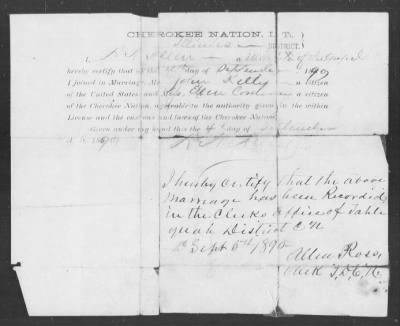 CHEROKEE NATION, I. T.,
DISTRICT.
I,
hereby certify that on the day of 1890
I joined in Marriage Mr. John Kelly a citizen
of the United States and Mrs. Ellen a citizen
of the Cherokee Nation, agreeable to the authority given in the within
License and the customs and laws of the Cherokee Nation.
Given under my hand this the 4 day of
A. D. 1890
I hereby Certify that the above
Marriage has been Recorded
in the Clerks Office of Tahle
quah District C N
Sept 5th 1890
Allen Ross,
Clerk T. D. C. N.